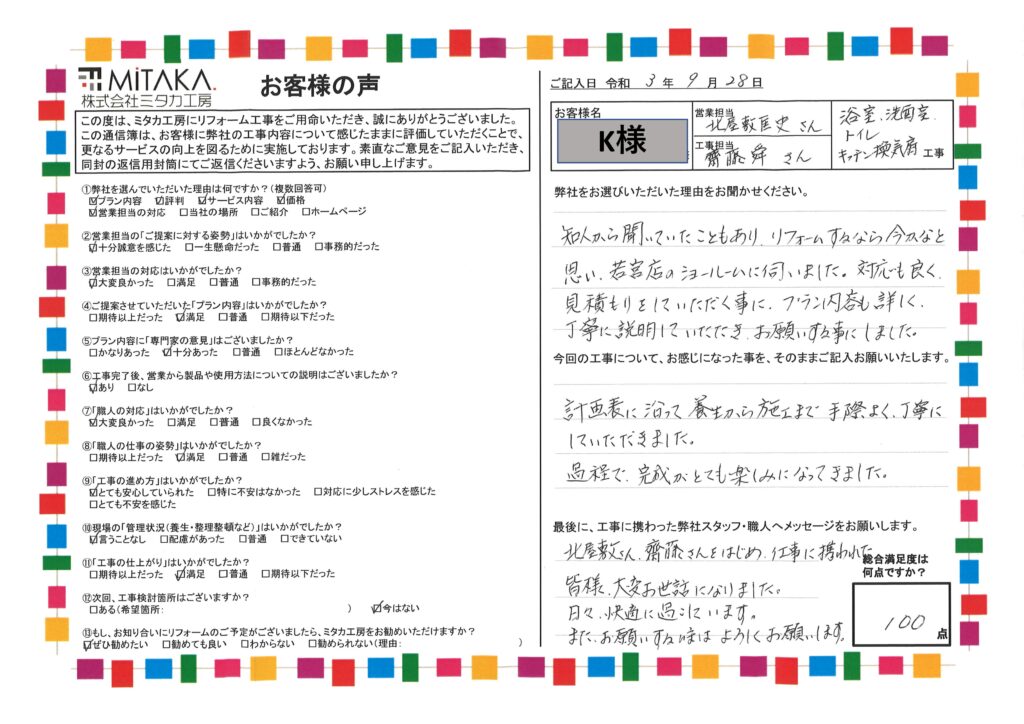 MiTAKA.
株式会社ミタカ工房
お客様の声
この度は、ミタカ工房にリフォーム工事をご用命いただき、誠にありがとうございました。
この通信簿は、お客様に弊社の工事内容について感じたままに評価していただくことで、
更なるサービスの向上を図るために実施しております。素直なご意見をご記入いただき、
同封の返信用封筒にてご返信くださいますよう、お願い申し上げます。
①弊社を選んでいただいた理由は何ですか？(複数回答可)
☑プラン内容 ☑評判 ☑サービス内容 ☑価格
☑営業担当の対応 □当社の場所 □ご紹介 □ホームページ
②営業担当の「ご提案に対する姿勢」はいかがでしたか？
☑十分誠意を感じた □一生懸命だった □普通 □事務的だった
③営業担当の対応はいかがでしたか？
☑大変良かった □満足 □普通 □事務的だった
④ご提案させていただいた「プラン内容」はいかがでしたか？
□期待以上だった ☑満足 □普通 □期待以下だった
⑤プラン内容に「専門家の意見」はございましたか？
□かなりあった ☑十分あった □普通 □ほとんどなかった
⑥工事完了後、営業から製品や使用方法についての説明はございましたか？
☑あり □なし
⑦「職人の対応」はいかがでしたか？
☑大変良かった □満足 □普通 □良くなかった
⑧「職人の仕事の姿勢」はいかがでしたか？
□期待以上だった ☑満足 □普通 □雑だった
⑨「工事の進め方」はいかがでしたか？
☑とても安心していられた □特に不安はなかった □対応に少しストレスを感じた
□とても不安を感じた
⑩現場の「管理状況(養生・整理整頓など)」はいかがでしたか？
☑言うことなし □配慮があった □普通 □できていない
⑪「工事の仕上がり」はいかがでしたか？
□期待以上だった ☑満足 □普通 □期待以下だった
⑫次回、工事検討箇所はございますか？
□ある(希望箇所: ) ☑今はない
⑬もし、お知り合いにリフォームのご予定がございましたら、ミタカ工房をお勧めいただけますか？
☑ぜひ勧めたい □勧めても良い □わからない □勧められない(理由: )
ご記入日 令和 3 年 9 月 28 日
お客様名
K様
営業担当
北屋敷匡史 さん
工事担当
齋藤舜 さん
浴室、洗面室、
トイレ
キッチン換気扇 工事
弊社をお選びいただいた理由をお聞かせください。
知人から聞いていたこともあり、リフォームするなら今かなと
思い、若宮店のショールームに伺いました。対応も良く、
見積もりをしていただく事に、プラン内容も詳しく、
丁寧に説明していただき、お願いする事にしました。
今回の工事について、お感じになった事を、そのままご記入お願いいたします。
計画表に沿って養生から施工まで手際よく、丁寧に
していただきました。
過程で、完成がとても楽しみになってきました。
最後に、工事に携わった弊社スタッフ・職人へメッセージをお願いします。
北屋敷さん、齋藤さんをはじめ、仕事に携われた
皆様、大変お世話になりました。
日々、快適に過ごしています。
また、お願いする時は よろしくお願いします。
総合満足度は
何点ですか？
100 点